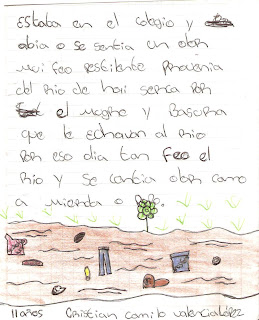 Estaba en el colegio y
abia o se sentia un olor
mui feo pestilente provenia
del Rio de hai serca por
el mugre y Basura
que le echavan al Rio
por eso olia tan feo el
Rio y se centia olor como
a mierda o
11 años Cristian camilo valencia López